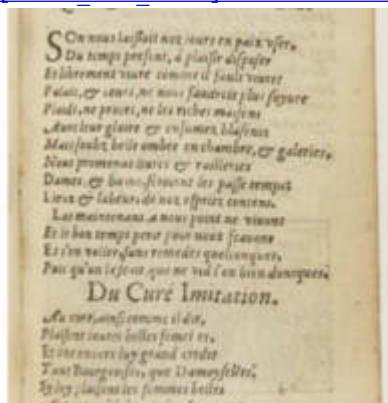 SOn nous laissoit noz iours en paix vser,
Du temps present, à plaisir disposer
Et librement viure comme il fault viure
Palais, & cours, ne nous faudroit plus suyure
Plaids, ne proces, ne les riches maisons
Auec leur gloire & enfumez blasons
Mais soubz belle ombre en chambre, & galeries,
Nous promenans liures & railleries
Dames & bains, seroient les passe temps
Lieux & labeurs de noz espritz contens.
Las maintenant à nous point ne viuons
Et le bon temps perir pour nous sçauons
Et s'en voller, sans remedes quelconques,
Puis qu'on le sçait, que ne vid l'on bien doncques?
Du Curé Imitation.
Au curé, ainsi comme il dit,
Plaisent toutes belles femmes
Et ont enuers luy grand credit
Tant Bourgeoises, que Damoyselles,
Si luy plaisent les femmes belles